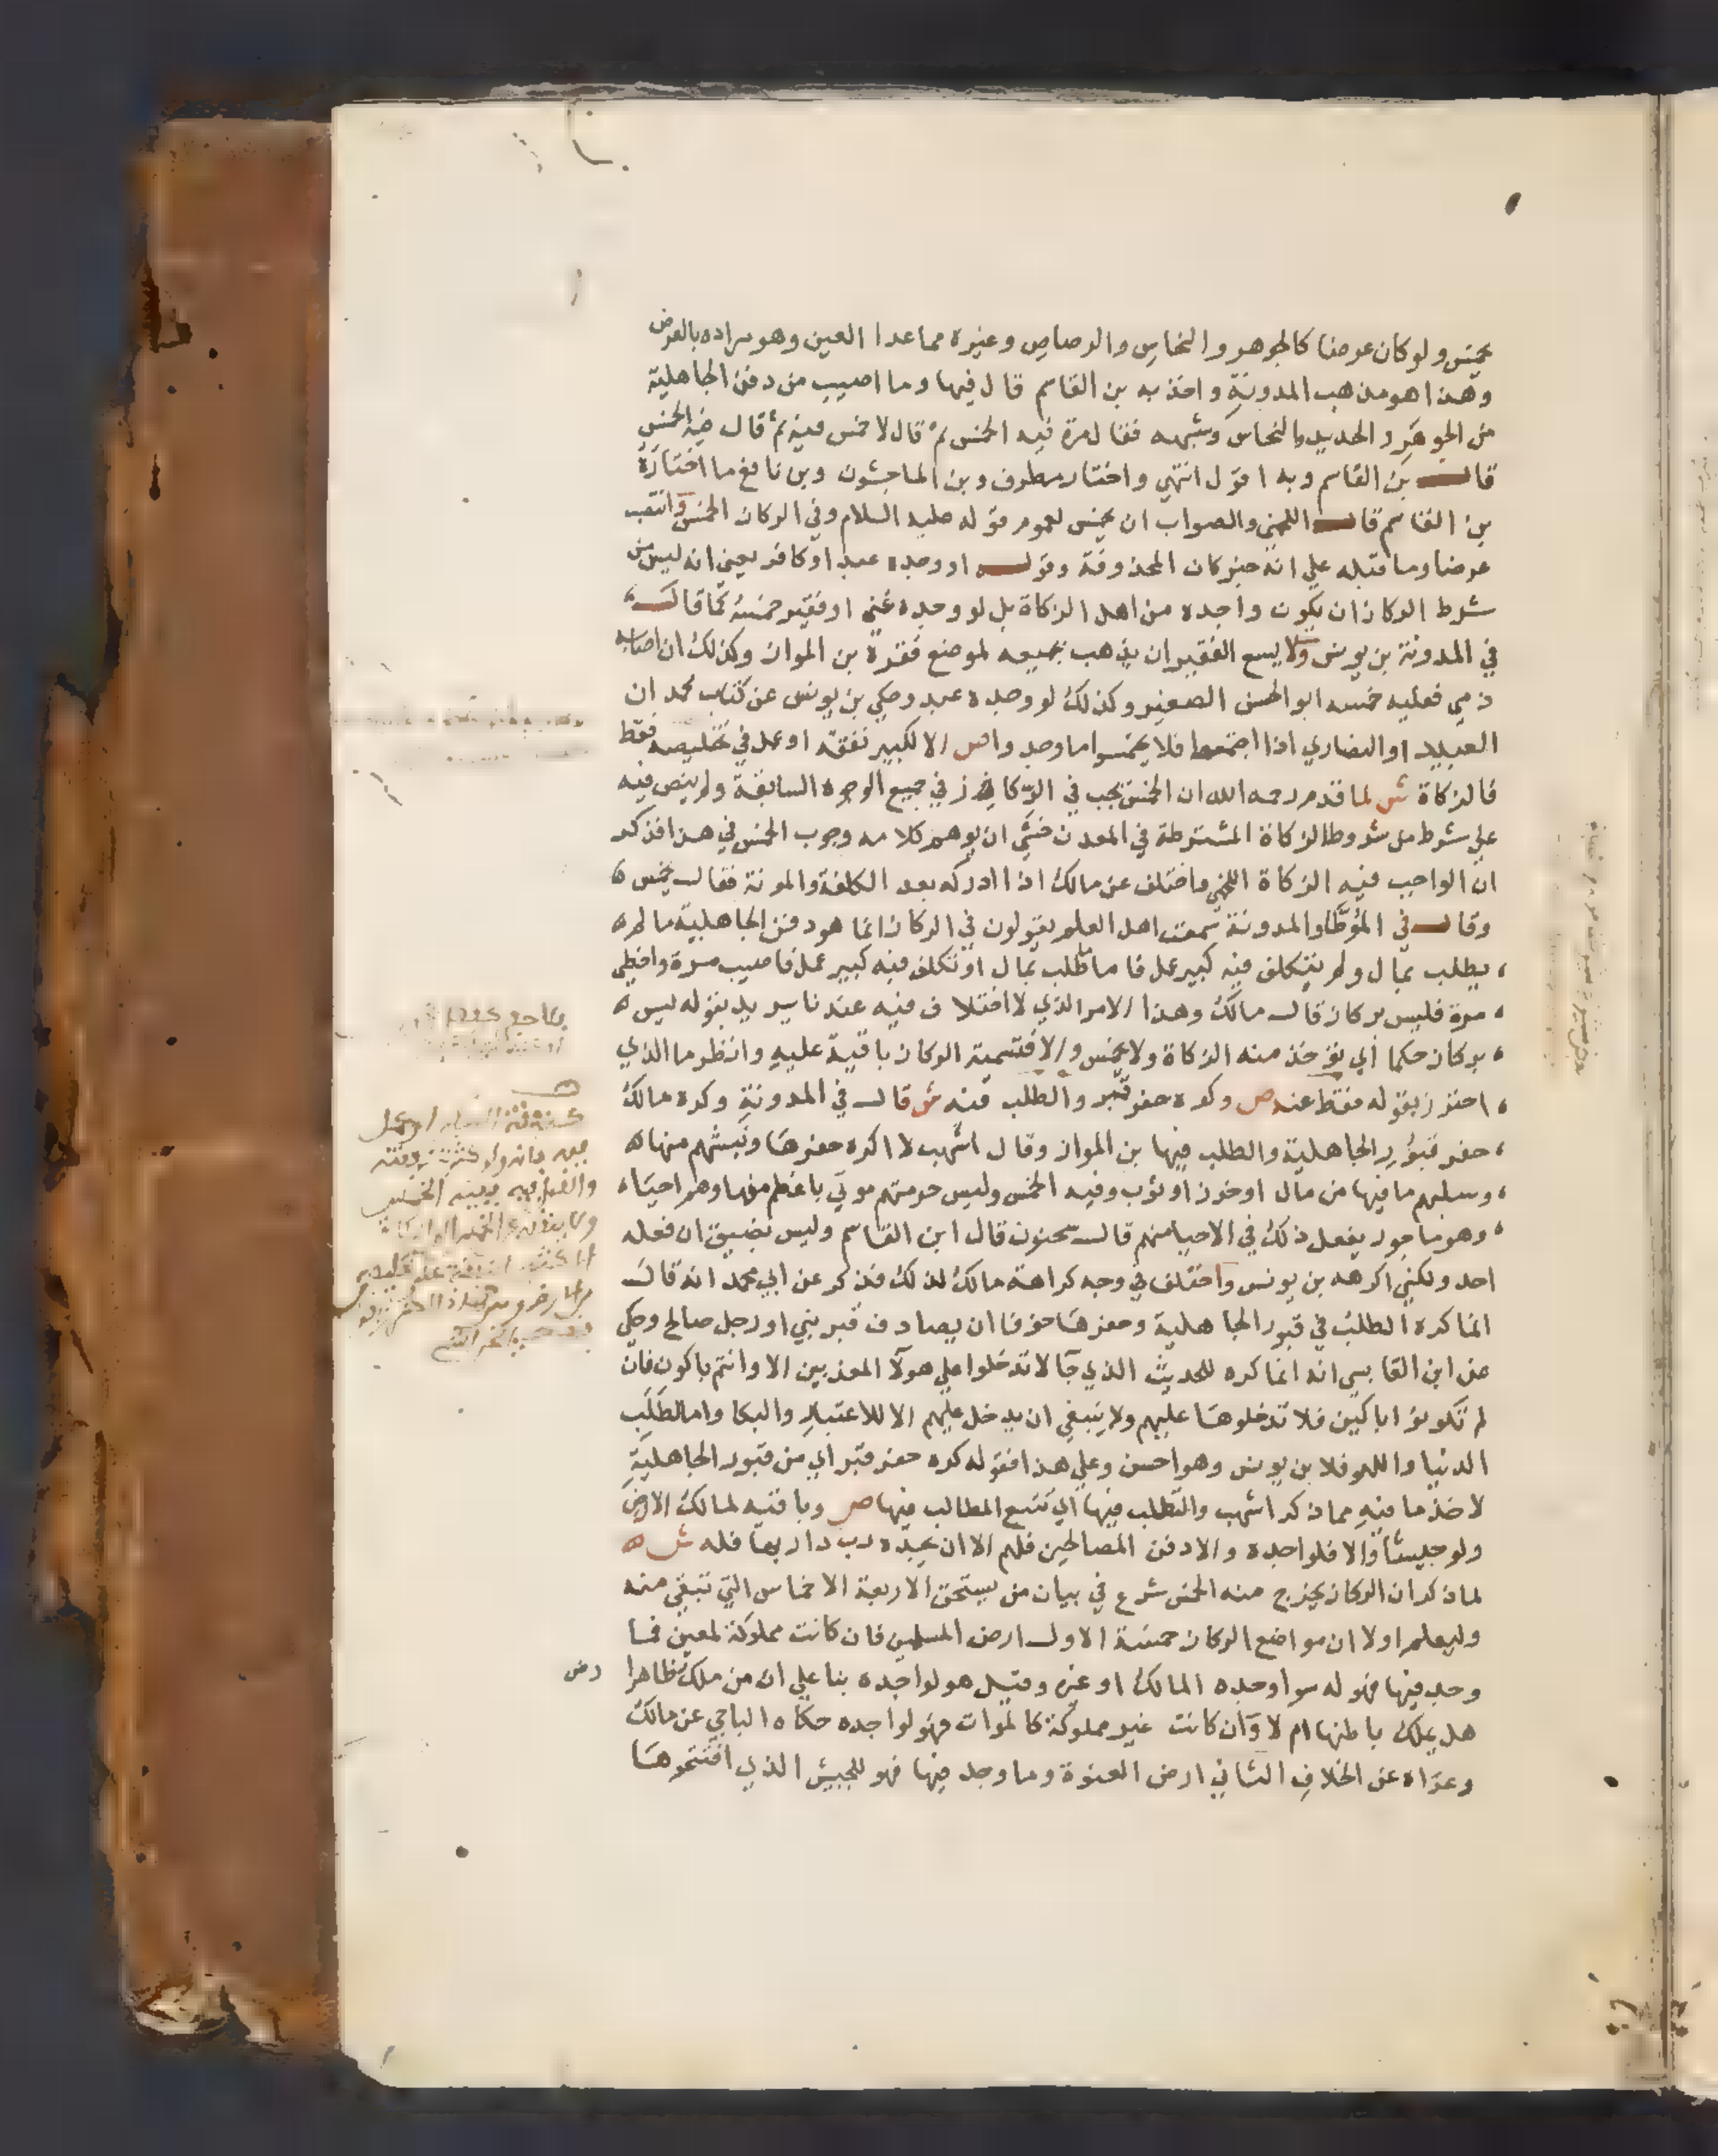 يخمس ولو كان عرضا كالجوهر والنحاس والرصاص وغيره مما عدا العين وهو مراده بالعرض
وهذا هو مذهب المدونة واخذ به بن القاسم قال فيها وما اصيب من دفن الجاهلية
من الجوهر والحديد والنحاس وشبهه فقال مرة فيه الخمس ثم قال لا خمس فيه ثم قال فيه الخمس
قال بن القاسم وبه اقول انتهي واختار مطرف وبن الماجشون وبن نافع ما اختاره
بن القاسم قال اللخمي والصواب ان يخمس لعموم قوله عليه السلام وفي الركاز الخمس وانتصب
عرضا وما قبله علي انه خبر كان المحذوفة وقوله او وجده عبد او كافر يعني انه ليس من
شرط الركاز ان يكون واجده من اهل الزكاة بل لو وجده غني او فقير خمسه كما قال
في المدونة بن يونس ولا يسع الفقير ان يذهب بجميعه لموضع فقره بن المواز وكذلك ان اصابه
ذمي فعليه خمسه ابو الحسن الصغير وكذلك لو وجده عبد وحكي بن يونس عن كتاب محمد ان
العبيد او النصاري اذا اجتمعوا فلا يخمسوا ما وجدوا ص الا لكبير نفقة او عمل في تخليصه فقط
فالزكاة ش لما قدم رحمه الله ان الخمس يجب في الركاز في جميع الوجوه السابقة ولم ينص فيه
علي شرط من شروط الزكاة المشترطة في المعدن خشي ان يوهم كلامه وجوب الخمس في هذا فذكر
ان الواجب فيه الزكاة اللخمي واختلف عن مالك اذا ادركه بعد الكلفة والمونة فقال يخمس
وقال في الموطا والمدونة سمعت اهل العلم يقولون في الركاز انما هو دفن الجاهلية ما لم
يطلب بمال ولم يتكلف فيه كبير عمل فاما ما طلب بمال او تكلف فيه كبير عمل فاصيب مرة واخطي
مرة فليس بركاز قال مالك وهذا الامر الذي لا اختلاف فيه عندنا يريد بقوله ليس
بركاز حكما اي يؤخذ منه الزكاة ولا يخمس والا فتسمية الركاز باقية عليه وانظر ما الذي
احترز بقوله فقط عنه ص وكره حفر قبر والطلب فيه ش قال في المدونة وكره مالك
حفر قبور الجاهلية والطلب فيها بن المواز وقال اشهب لا اكره حفرها ونبشهم منها
وسلبهم ما فيها من مال او خرز او ثوب وفيه الخمس وليس حرمتهم موتي باعظم منها وهم احياء
وهو ماجور بفعل ذلك في الاحيا منهم قال سحنون قال ابن القاسم وليس بضيق ان فعله
احد ولكني اكرهه بن يونس واختلف في وجه كراهة مالك لذلك فذكر عن ابي محمد انه قال
انما كره الطلب في قبور الجاهلية وحفرها خوفا ان يصادف قبر نبي او رجل صالح وحكي
عن ابن القابسي انه انما كره للحديث الذي جا لا تدخلوا علي هولا المعذبين الا وانتم باكون فان
لم تكونوا باكين فلا تدخلوها عليهم ولا ينبغي ان يدخل عليهم الا للاعتبار والبكا واما لطلب
الدنيا واللهو فلا بن يونس وهو احسن وعلي هذا فقوله كره حفر قبر اي من قبور الجاهلية
لاخذ ما فيه مما ذكر اشهب والتطلب فيها اي تتبع المطالب فيها ص وباقيه لمالك الارض
ولو جيشا والا فلواجده والا دفن المصالحين فلهم الا ان يجده رب دار بها فله ش
لما ذكر ان الركاز يخرج منه الخمس شرع في بيان من يستحق الاربعة الاخماس التي تبقي منه
وليعلم اولا ان مواضع الركاز خمسة الاول ارض المسلمين فان كانت مملوكة لمعين فما
وجد فيها فهو له سوا وجده المالك او غيره وقيل هو لواجده بنا علي ان من ملك ظاهرا
هل يملك باطنها ام لا وان كانت غير مملوكة كالموات فهو لواجده حكاه الباجي عن مالك
وعزاه عن الخلاف الثاني ارض العنوة وما وجد فيها فهو للجيش الذي افتتحوها